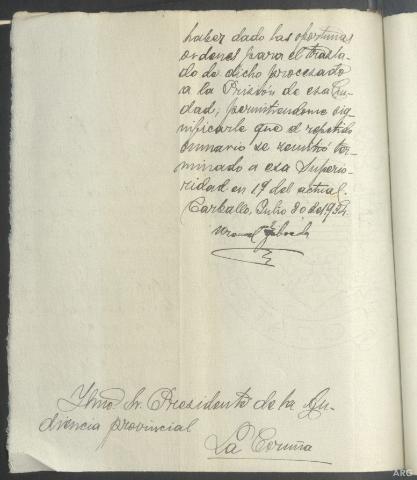 haber dado las oportunas
ordenes para el trasla-
do de dicho procesado
a la Prisión de esa Ciu-
dad; permitiendome sig-
nificarle que el repetido
sumario se remitió ter-
minado a esa Superio-
ridad en 19 del actual.
Carballo, Julio 30 de 1934.
Manuel
Ilmo Sr. Presidente de la Au-
diencia provincial
La Coruña
ARG